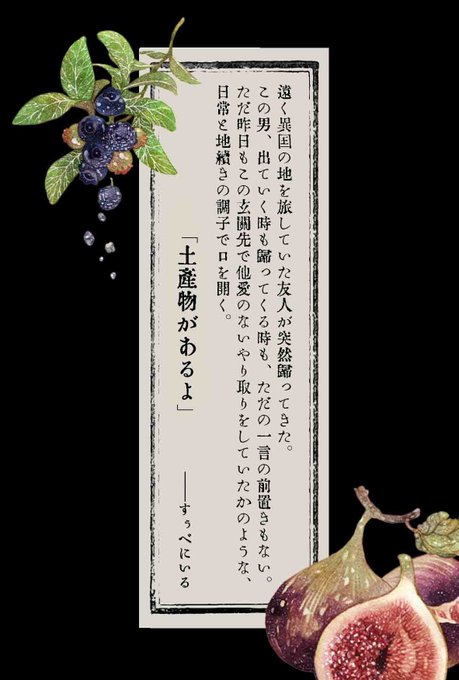 遠く異国の地を旅していた友人が突然歸ってきた。
この男、出ていく時も歸ってくる時も、ただの一言の前置きもない。
ただ昨日もこの玄關先で他愛のないやり取りをしていたかのような、
日常と地續きの調子で口を開く。
「土産物があるよ」
──すぅべにいる